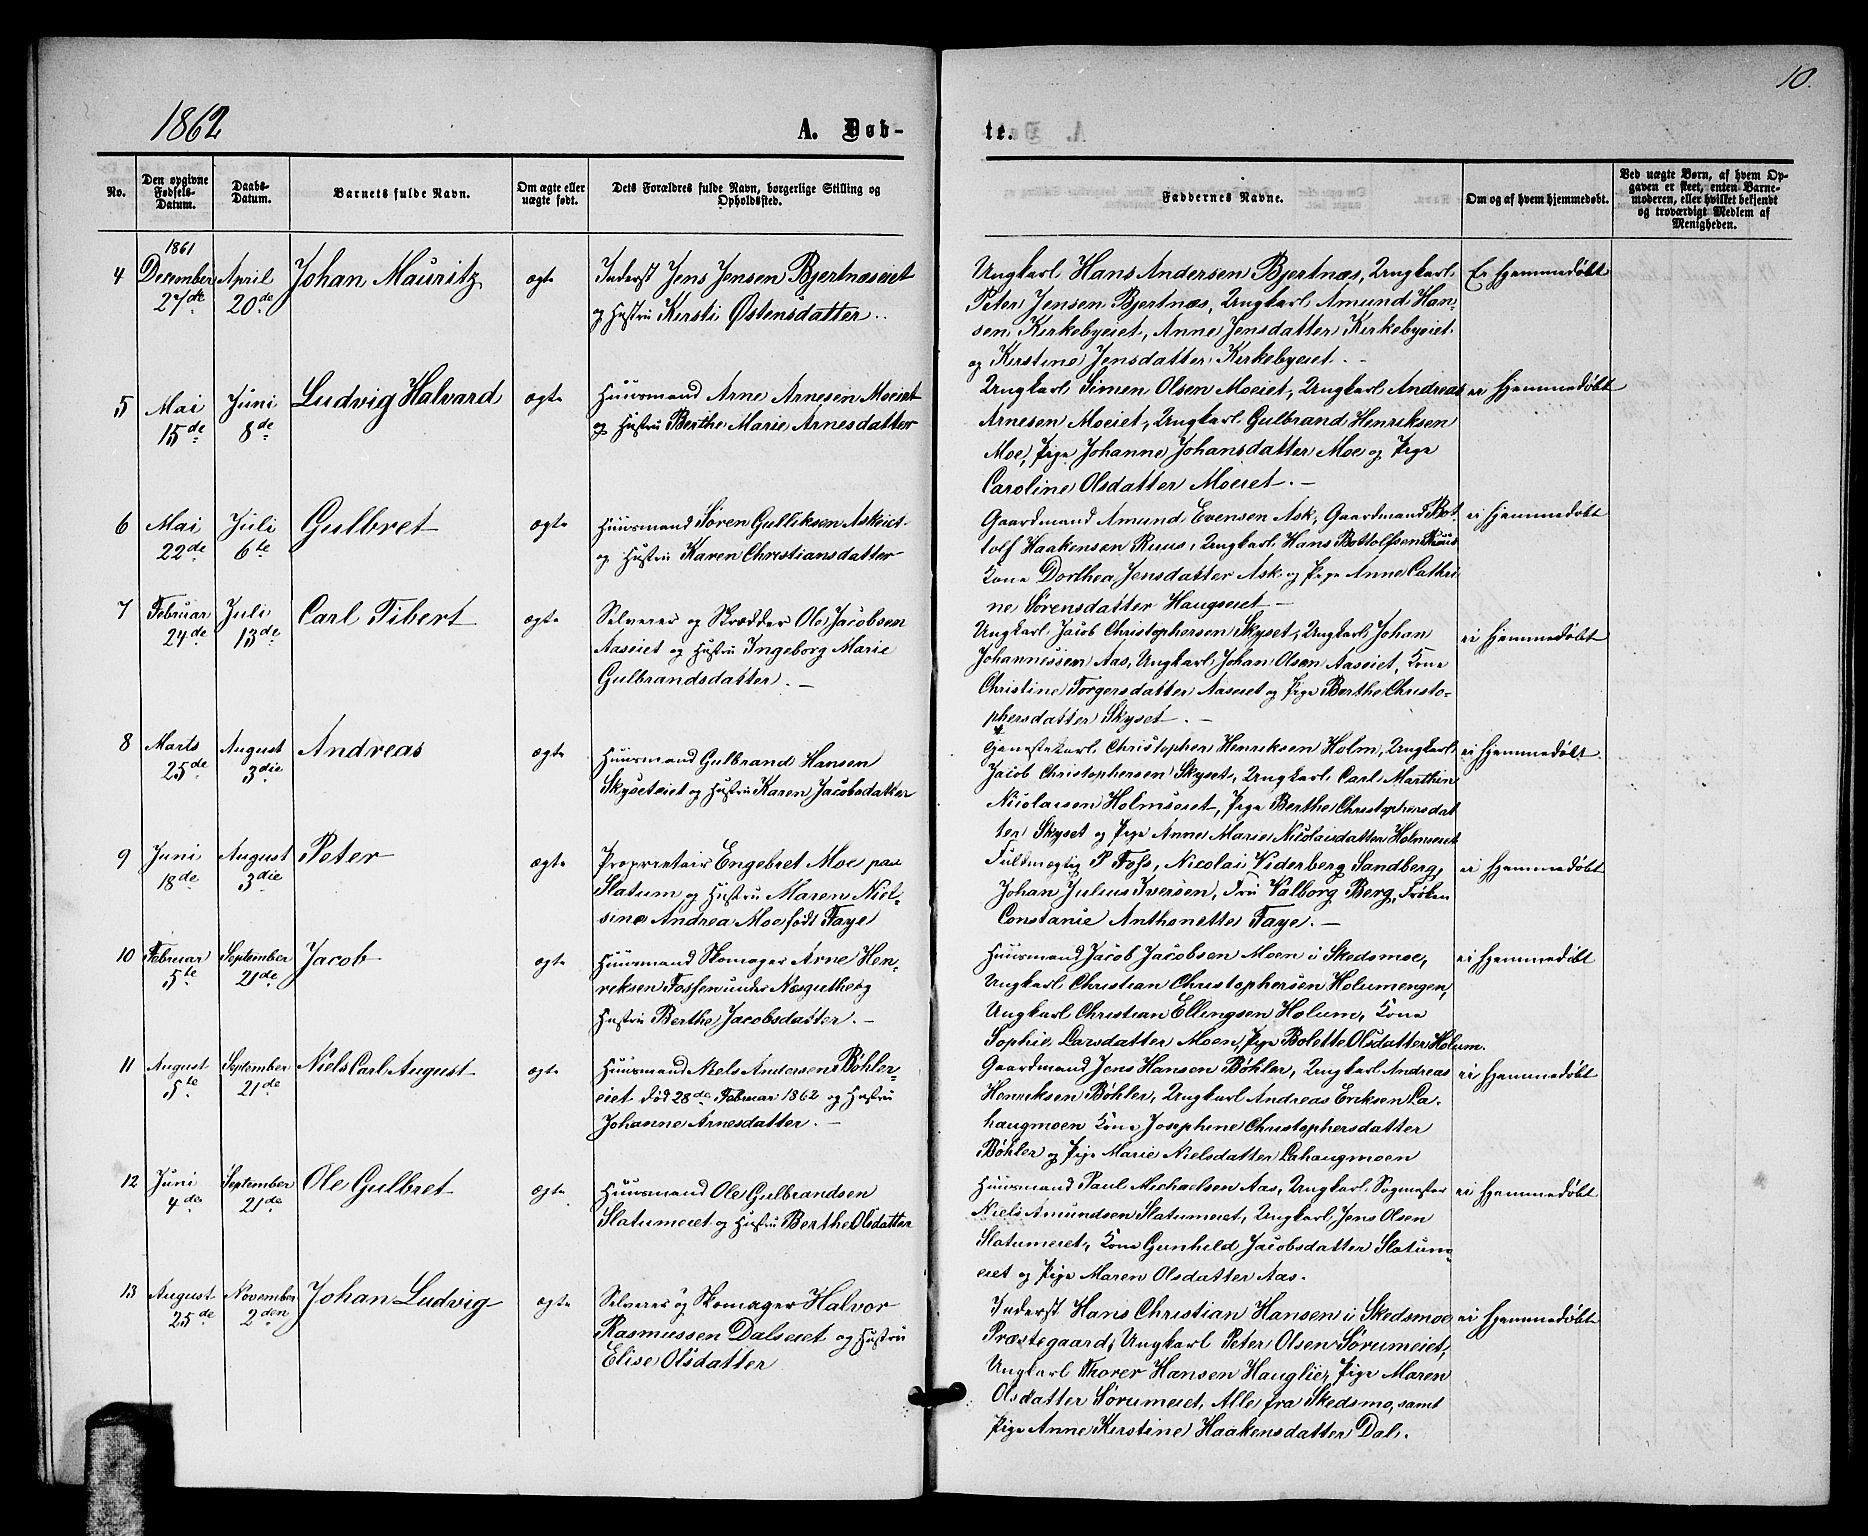 10.
1862
A. Døb-
te.
No.
Den opgivne Fødsels-Datum.
Daabs-Datum.
Barnets fulde Navn.
Om ægte eller uægte født.
Dets Forældres fulde Navn, borgerlige Stilling og Opholdssted.
Faddernes Navne.
Om og af hvem hjemmedøbt.
Ved uægte Børn, af hvem Opgaven er skeet, enten Barnemoderen, eller hvilket bekjendt og troværdigt Medlem af Menigheden.
4
1861
December 27de
April 20de
Johan Mauritz
ægte
Inderst Jens Jensen Bjertnæseiet
og Hustru Kirsti Østensdatter.
Ungkarl Hans Andersen Bjertnæs, Ungkarl
Peter Jensen Bjertnæs, Ungkarl Amund Han-
sen Kirkebyeiet, Anne Jensdatter Kirkebyeiet
og Kirstine Jensdatter Kirkebyeiet.
Er hjemmedøbt
5
Mai 15de
Juni 8de
Ludvig Halvard
ægte
Huusmand Arne Arnesen Moeiet
og Hustru Berthe Marie Arnesdatter
Ungkarl Simen Olsen Moeiet, Ungkarl Andreas
Arnesen Moeiet, Ungkarl Gulbrand Henriksen
Moe, Pige Johanne Johansdatter Moe og Pige
Caroline Olsdatter Moeiet.
er hjemmedøbt
6
Mai 22de
Juli 6te
Gulbret
ægte
Huusmand Søren Gulliksen Askeiet
og Hustru Karen Christiansdatter
Gaardmand Amund Evensen Ask, Gaardmand Bot-
tolf Haakensen Ruus, Ungkarl Hans Bottolfsen Ruus
Kone Dorthea Jensdatter Ask og Pige Anne Cathri
ne Sørensdatter Haugseiet
ei hjemmedøbt
7
Februar 24de
Juli 13de
Carl Tibert
ægte
Selveier og Skrædder Ole Jacobsen
Aaseiet og Hustru Ingeborg Marie
Gulbrandsdatter.
Ungkarl Jacob Christophersen Skyset, Ungkarl Johan
Johannessen Aas, Ungkarl Johan Olsen Aaseiet, Kone
Christine Torgersdatter Aaseiet og Pige Berthe Christo-
phersdatter Skyset.
ei hjemmedøbt
8
Marts 25de
August 3die
Andreas
ægte
Huusmand Gulbrand Hansen
Skyseteiet og Hustru Karen Jacobsdatter
Tjenestekarl Christopher Henriksen Holm, Ungkarl
Jacob Christophersen Skyset, Ungkarl Carl Marthin
Nicolaisen Holmseiet, Pige Berthe Christophersdat
ter Skyset og Pige Anne Marie Nicolaisdatter Holmseiet
ei hjemmedøbt.
9
Juni 18de
August 3die
Peter
ægte
Proprietair Engebret Moe paa
Slatum og Hustru Maren Niel-
sine Andrea Moe født Faye
Fuldmægtig P Foss, Nicolai Viderberg Sandberg,
Johan Julius Iversen, Fru Valborg Berg, Frøken
Constanie Anthonette Faye.
ei hjemmedøbt
10
Februar 5te
September 21de
Jacob
ægte
Huusmand Skomager Arne Hen-
riksen Fossen under Næsgutherog
Hustru Berthe Jacobsdatter.
Huusmand Jacob Jacobsen Moen i Skedsmoe,
Ungkarl Christian Christophersen Holumengen,
Ungkarl Christian Ellingsen Holum, Kone
Sophie Larsdatter Moen, Pige Bolette Olsdatter Holum.
ei hjemmedøbt
11
August 5te
September 21de
Niels Carl August
ægte
Huusmand Niels Andersen Bøhler-
eiet død 28de Februar 1862 og Hustru
Johanne Arnesdatter.
Gaardmand Jens Hansen Bøhler, Ungkarl Andreas
Henriksen Bøhler, Ungkarl Andreas Eriksen La-
haugmoen Kone Josephine Christophersdatter
Bøhler og Pige Marie Nielsdatter Lahaugmoen
ei hjemmedøbt
12
Juni 4de
September 21de
Ole Gulbret
ægte
Huusmand Ole Gulbrandsen
Slatumeiet og Hustru Berthe Olsdatter
Huusmand Paul Michaelsen Aas, Ungkarl Sogmester
Niels Amundsen Slatumeiet, Ungkarl Jens Olsen
Slatumeiet, Kone Gunhild Jacobsdatter Slatum-
eiet og Pige Maren Olsdatter Aas.
ei hjemmedøbt
13
August 25de
November 2den
Johan Ludvig
ægte
Selveier og Skomager Halvor
Rasmussen Dalseiet og Hustru
Elise Olsdatter
Inderst Hans Christian Hansen i Skedsmoe
Præstegaard, Ungkarl Peter Olsen Sørumeiet,
Ungkarl Thorer Hansen Hauglie, Pige Maren
Olsdatter Sørumeiet, Alle fra Skedsmo, samt
Pige Anne Kirstine Haakensdatter Dal.
ei hjemmedøbt